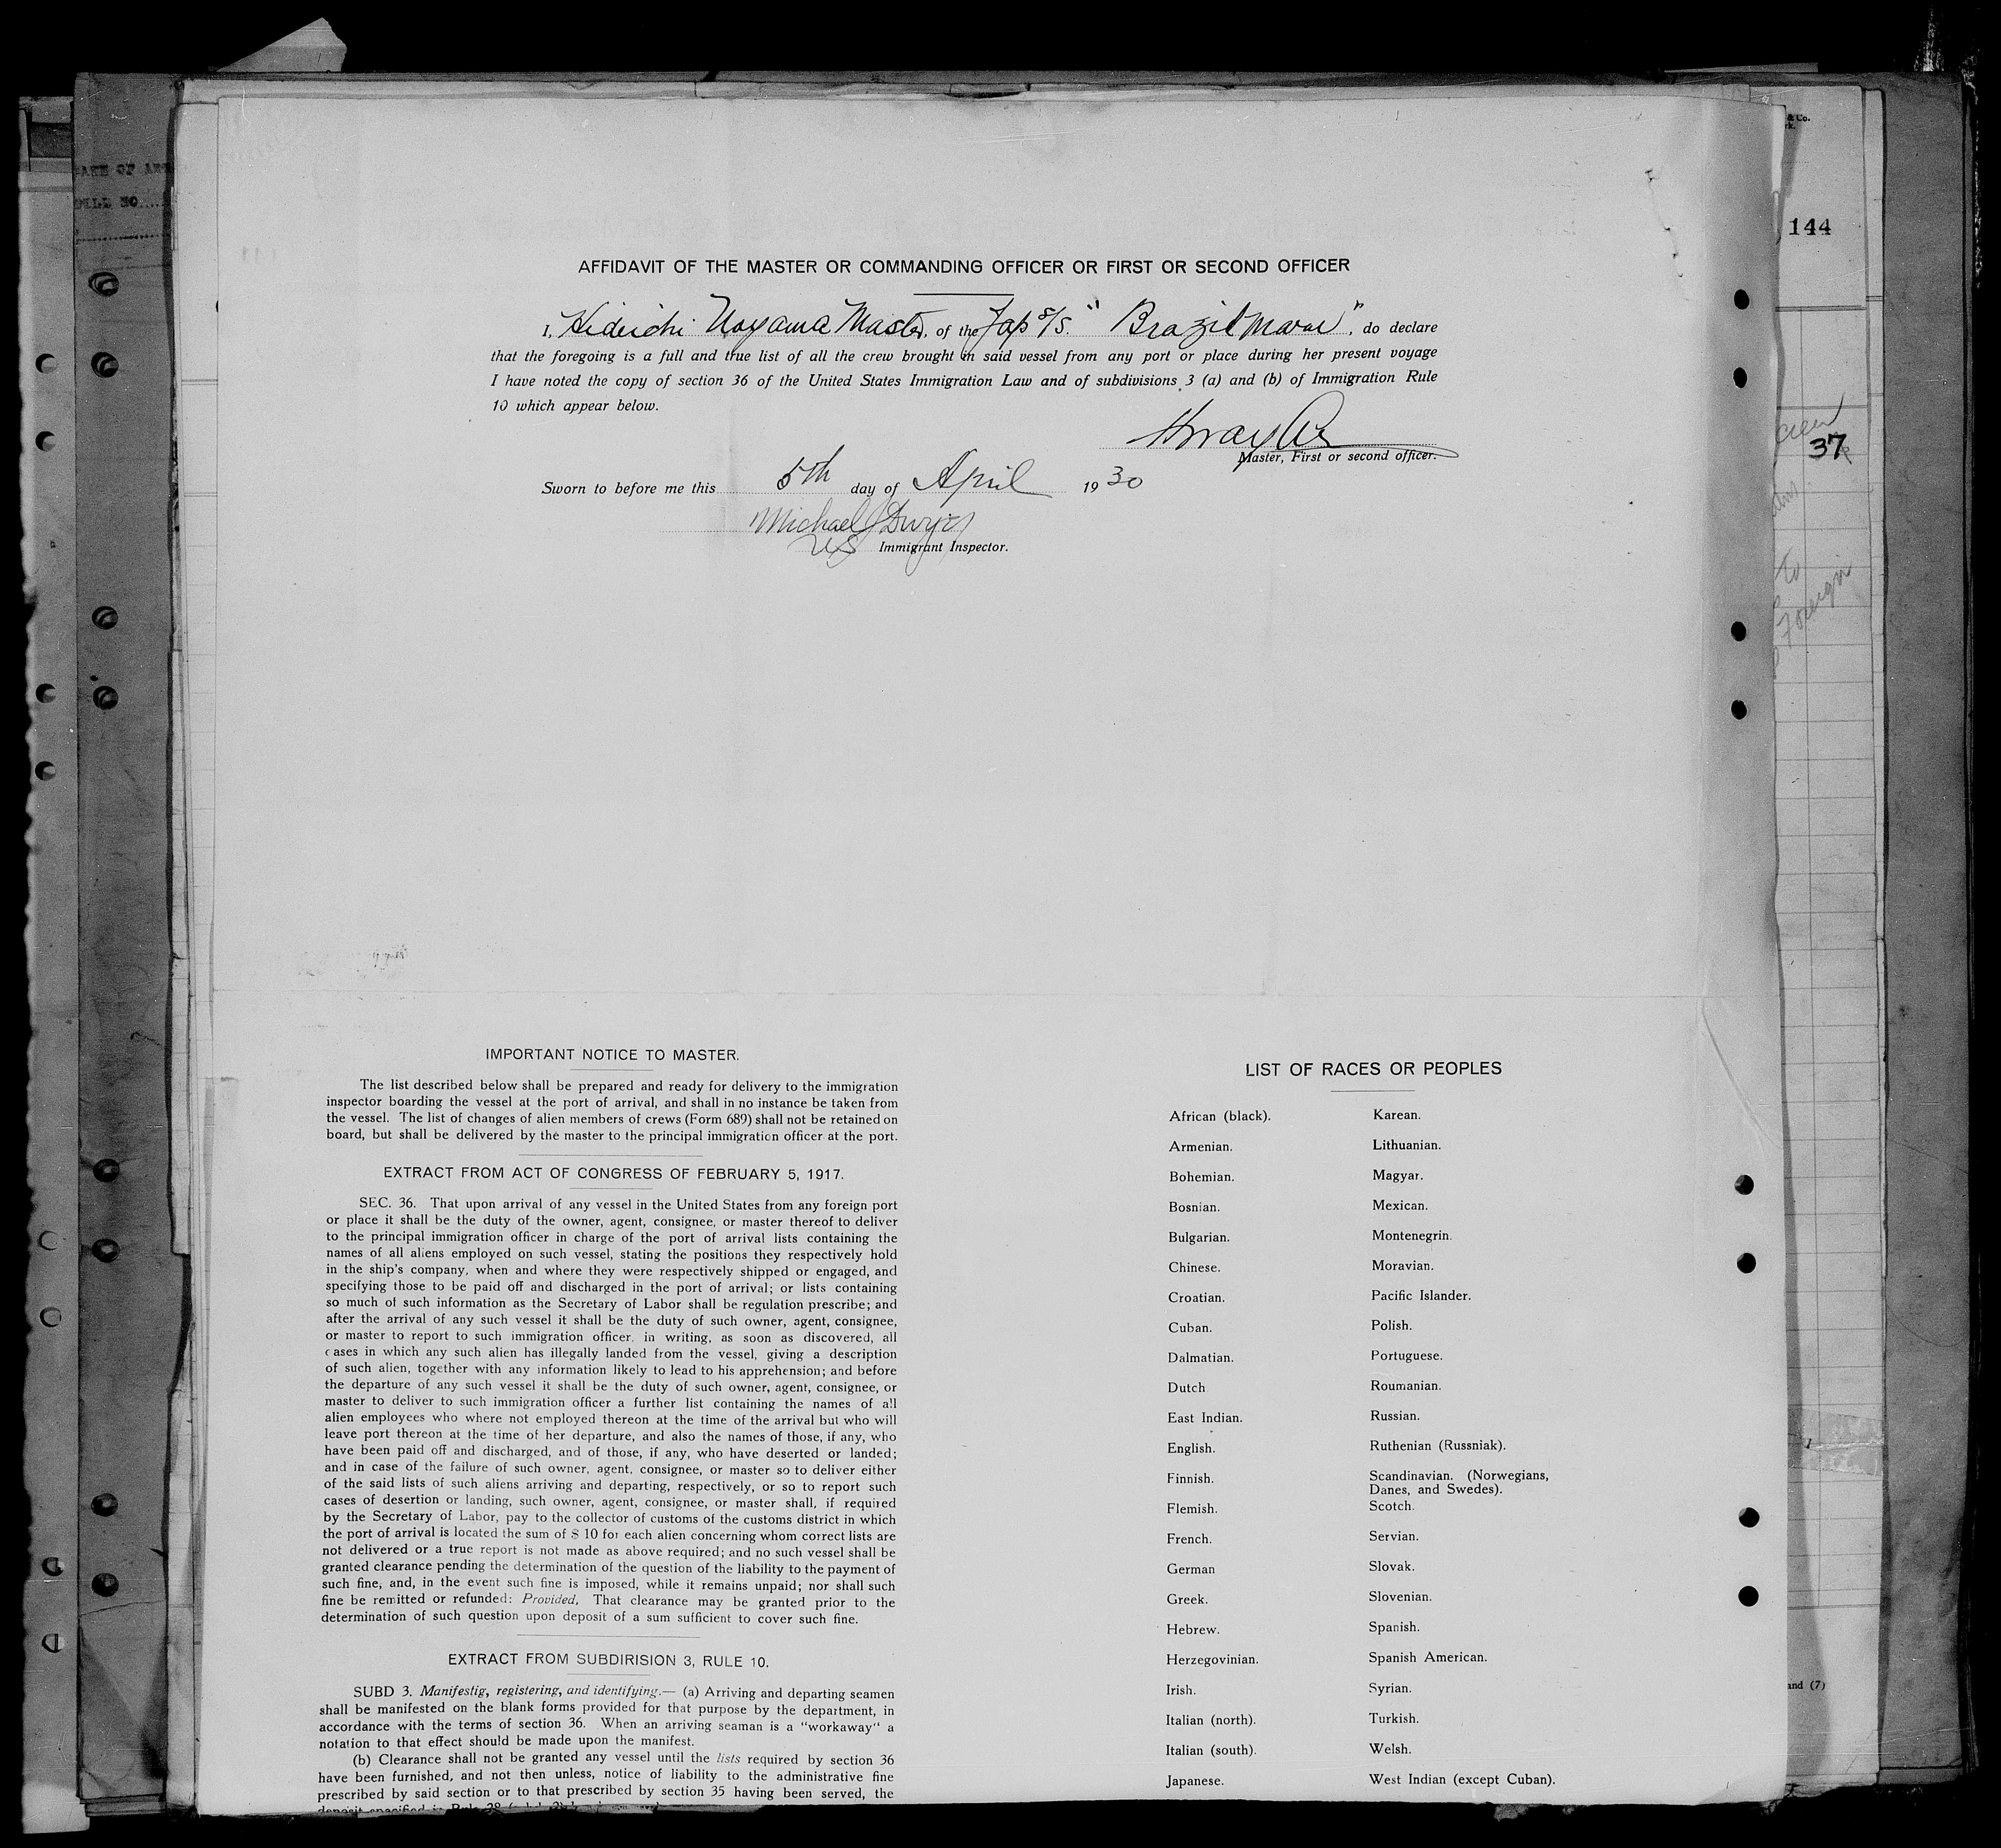 & Co.
rk.
144
AFFIDAVIT OF THE MASTER OR COMMANDING OFFICER OR FIRST OR SECOND OFFICER
I, Hideichi Noyama Master, of the Jap S/S. "Brazil Maru", do declare
that the foregoing is a full and true list of all the crew brought in said vessel from any port or place during her present voyage
I have noted the copy of section 36 of the United States Immigration Law and of subdivisions 3 (a) and (b) of Immigration Rule
10 which appear below.
Master, First or second officer.
37
Sworn to before me this 5th day of April 1930
Michael J Dwyer
US Immigrant Inspector.
to
Foreign
IMPORTANT NOTICE TO MASTER.
The list described below shall be prepared and ready for delivery to the immigration
inspector boarding the vessel at the port of arrival, and shall in no instance be taken from
the vessel. The list of changes of alien members of crews (Form 689) shall not be retained on
board, but shall be delivered by the master to the principal immigration officer at the port.
EXTRACT FROM ACT OF CONGRESS OF FEBRUARY 5, 1917.
SEC. 36. That upon arrival of any vessel in the United States from any foreign port
or place it shall be the duty of the owner, agent, consignee, or master thereof to deliver
to the principal immigration officer in charge of the port of arrival lists containing the
names of all aliens employed on such vessel, stating the positions they respectively hold
in the ship's company, when and where they were respectively shipped or engaged, and
specifying those to be paid off and discharged in the port of arrival; or lists containing
so much of such information as the Secretary of Labor shall be regulation prescribe; and
after the arrival of any such vessel it shall be the duty of such owner, agent, consignee,
or master to report to such immigration officer, in writing, as soon as discovered, all
cases in which any such alien has illegally landed from the vessel, giving a description
of such alien, together with any information likely to lead to his apprehension; and before
the departure of any such vessel it shall be the duty of such owner, agent, consignee, or
master to deliver to such immigration officer a further list containing the names of all
alien employees who where not employed thereon at the time of the arrival but who will
leave port thereon at the time of her departure, and also the names of those, if any, who
have been paid off and discharged, and of those, if any, who have deserted or landed;
and in case of the failure of such owner, agent, consignee, or master so to deliver either
of the said lists of such aliens arriving and departing, respectively, or so to report such
cases of desertion or landing, such owner, agent, consignee, or master shall, if required
by the Secretary of Labor, pay to the collector of customs of the customs district in which
the port of arrival is located the sum of $ 10 for each alien concerning whom correct lists are
not delivered or a true report is not made as above required; and no such vessel shall be
granted clearance pending the determination of the question of the liability to the payment of
such fine, and, in the event such fine is imposed, while it remains unpaid; nor shall such
fine be remitted or refunded: Provided, That clearance may be granted prior to the
determination of such question upon deposit of a sum sufficient to cover such fine.
EXTRACT FROM SUBDIRISION 3, RULE 10.
SUBD 3. Manifestig, registering, and identifying.— (a) Arriving and departing seamen
shall be manifested on the blank forms provided for that purpose by the department, in
accordance with the terms of section 36. When an arriving seaman is a "workaway" a
notation to that effect should be made upon the manifest.
(b) Clearance shall not be granted any vessel until the lists required by section 36
have been furnished, and not then unless, notice of liability to the administrative fine
prescribed by said section or to that prescribed by section 35 having been served, the
LIST OF RACES OR PEOPLES
African (black).
Armenian.
Bohemian.
Bosnian.
Bulgarian.
Chinese.
Croatian.
Cuban.
Dalmatian.
Dutch
East Indian.
English.
Finnish.
Flemish.
French.
German
Greek.
Hebrew.
Herzegovinian.
Irish.
Italian (north).
Italian (south).
Japanese.
Karean.
Lithuanian.
Magyar.
Mexican.
Montenegrin.
Moravian.
Pacific Islander.
Polish.
Portuguese.
Roumanian.
Russian.
Ruthenian (Russniak).
Scandinavian. (Norwegians,
Danes, and Swedes).
Scotch.
Servian.
Slovak.
Slovenian.
Spanish.
Spanish American.
Syrian.
Turkish.
Welsh.
West Indian (except Cuban).
and (7)